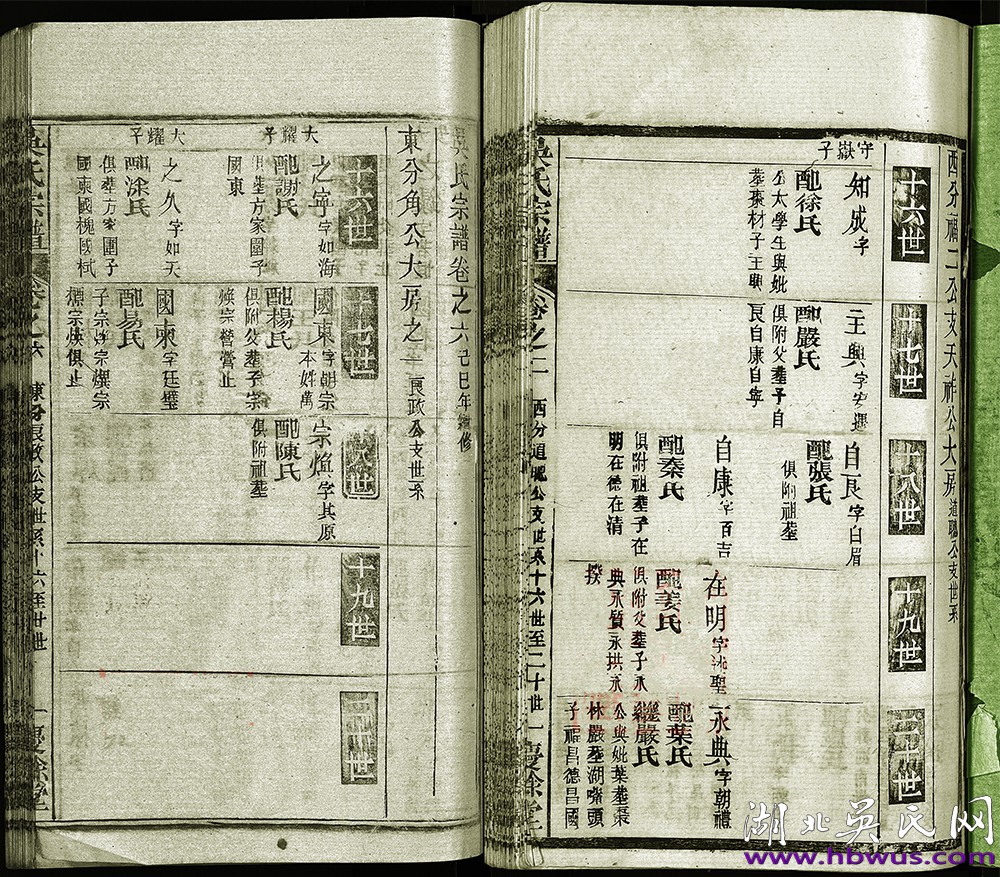 西分福二公支天祥公大房道聰公支世系
十六世
十七世
十八世
十九世
二十世
守嶽子
知成字
配徐氏
公太學生與妣
葬棗材子王興
王興字安遜
配嚴氏
俱附父葬子自
艮自康自寧
自艮字白眉
配張氏
俱附祖葬
自康字百吉
配秦氏
俱附祖葬子在
明在德在清
在明字沘聖
配姜氏
俱附父葬子永
典永質永拱永
撰
永典字朝禮
配葉氏
繼嚴氏
公與妣葉葬棗
林嚴葬湖嘴頭
子福昌德昌國
吳氏宗譜
卷之二
西分道聰公支世系十六世至二十世
一
慶餘堂
吳氏宗譜卷之六己巳年續修
東分角公大房之一良政公支世系
十六世
十七世
十八世
十九世
二十世
大耀子
之寧字如海
配謝氏
俱葬方家園子
國東
大耀子
之久字如天
配涂氏
俱葬方家園子
國柬國槐國栻
國東字朝宗
本姓萬
配楊氏
俱附父葬子宗
煥宗營營止
國柬字廷璧
配易氏
宗煥俱止
宗焰字其原
配陳氏
俱附祖葬
吳氏宗譜
卷之六
東分良政公支世系十六至廿世
一
慶餘堂
湖北吳氏网
www.hbwus.com